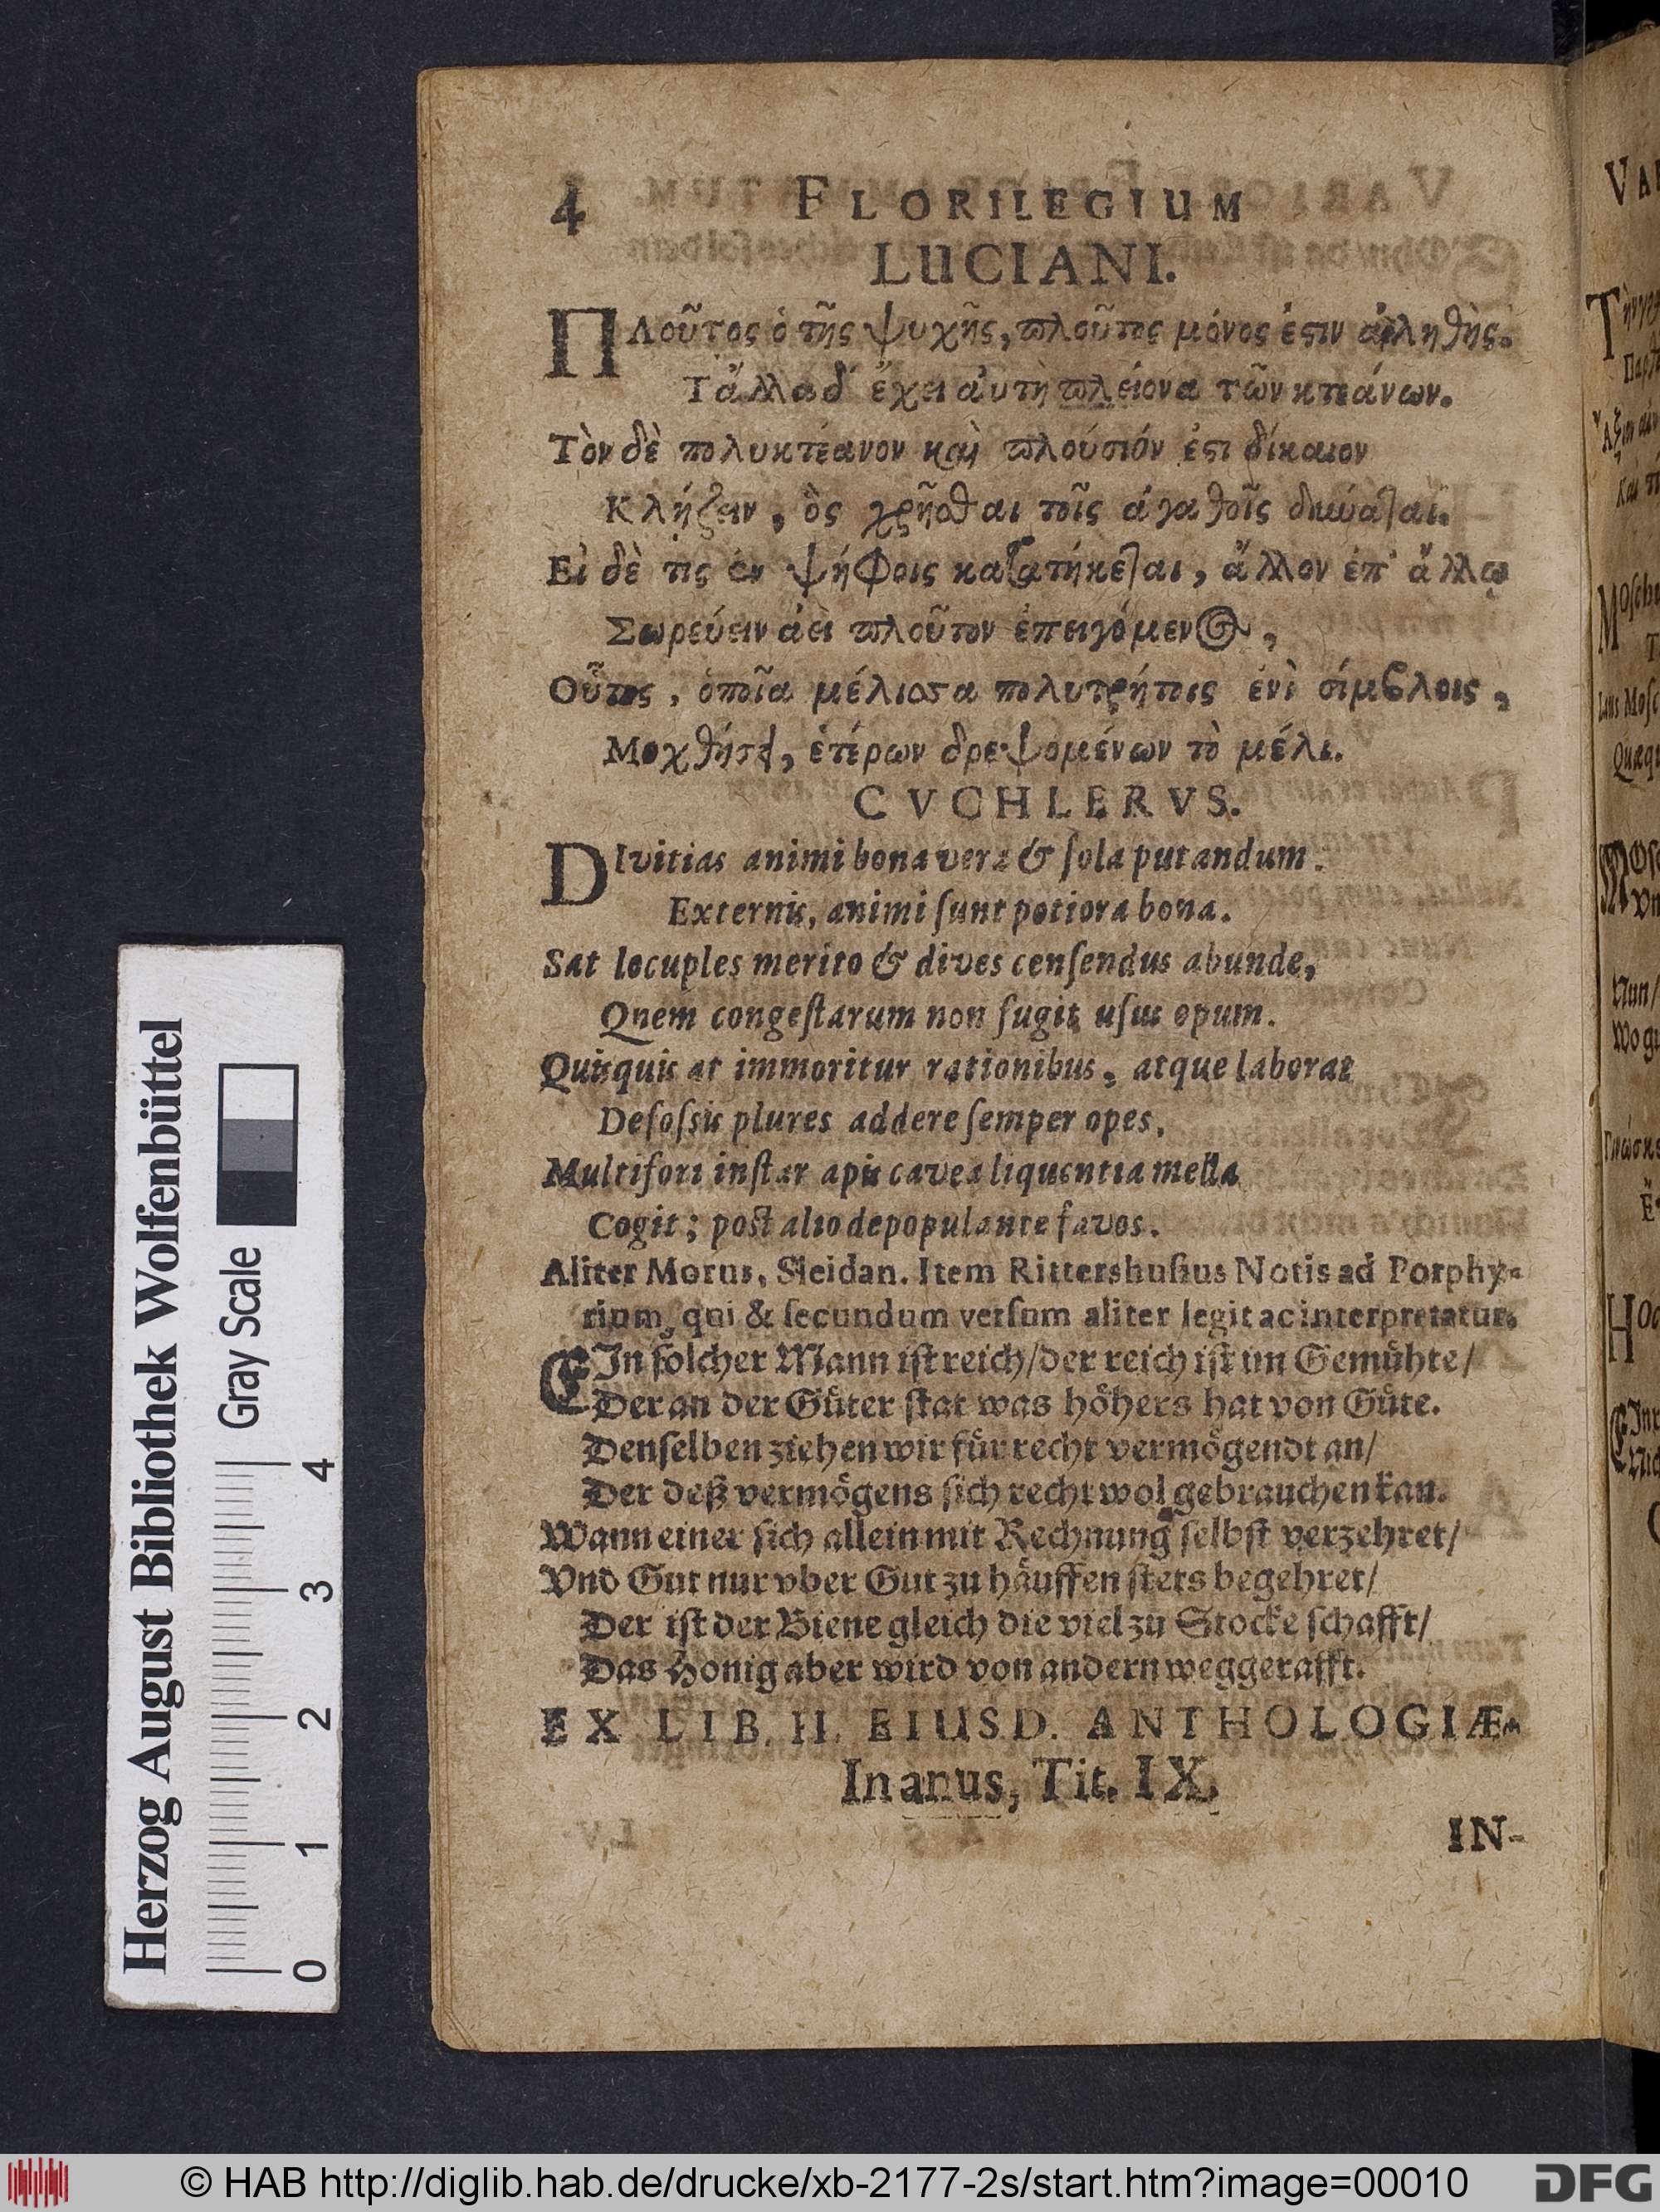 4 FLORILEGIUM
LUCIANI.
ΠΛοῦτος ὁ τῆς ψυχῆς, πλοῦτος μόνος ἐστιν ἀληθὴς.
Τἄλλα δ' ἔχει ἀυτὴ πλείονα τῶν κτεάνων.
Τὸν δὲ πολυκτέανον καὶ πλούσιόν ἐστι δίκαιον
Κλήζειν, ὃς χρῆσθαι τοῖς ἀγαθοῖς δυνάται.
Εἰ δὲ τις ἐν ψήφοις κατατήκεται, ἄλλον ἐπ' ἄλλῳ
Σωρεύειν ἀεὶ πλοῦτον ἐπειγόμενος,
Οὗτος, ὁποῖα μέλισσα πολυτρήτοις ἐνὶ σίμβλοις,
Μοχθήσει, ἑτέρων δρεψομένων τὸ μέλι.
CVCHLERVS.
DIvitias animi bona vera & ſola putandum.
Externis, animi ſunt potiora bona.
Sat locuples merito & dives cenſendus abunde,
Qnem congeſtarum non fugit uſus opum.
Quisquis at immoritur rationibus, atque laborat
Defoſsis plures addere ſemper opes,
Multifori inſtar apis cavea liquentia mella
Cogit; poſt alio depopulante favos.
Aliter Morus, Sleidan. Item Rittershuſius Notis ad Porphy-
rium, qui & ſecundum verſum aliter legit ac interpretatur.
EIn ſolcher Mann iſt reich/der reich iſt im Gemuͤhte/
Der an der Guͤter ſtat was hoͤhers hat von Guͤte.
Denſelben ziehen wir fuͤr recht vermoͤgendt an/
Der deß vermoͤgens ſich recht wol gebrauchen kan.
Wann einer ſich allein mit Rechnung ſelbſt verzehret/
Vnd Gut nur vber Gut zu haͤuffen ſtets begehret/
Der iſt der Biene gleich die viel zu Stocke ſchafft/
Das Honig aber wird von andern weggerafft.
EX LIB. II. EIUSD. ANTHOLOGIÆ.
In anus, Tit. IX.
IN-
Herzog August Bibliothek Wolfenbüttel
Gray Scale
0 1 2 3 4
© HAB http://diglib.hab.de/drucke/xb-2177-2s/start.htm?image=00010
DFG